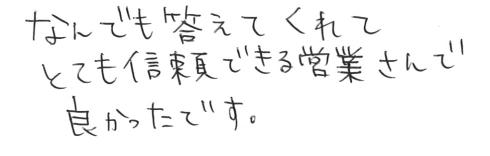 なんでも答えてくれて
とても信頼できる営業さんで
良かったです。